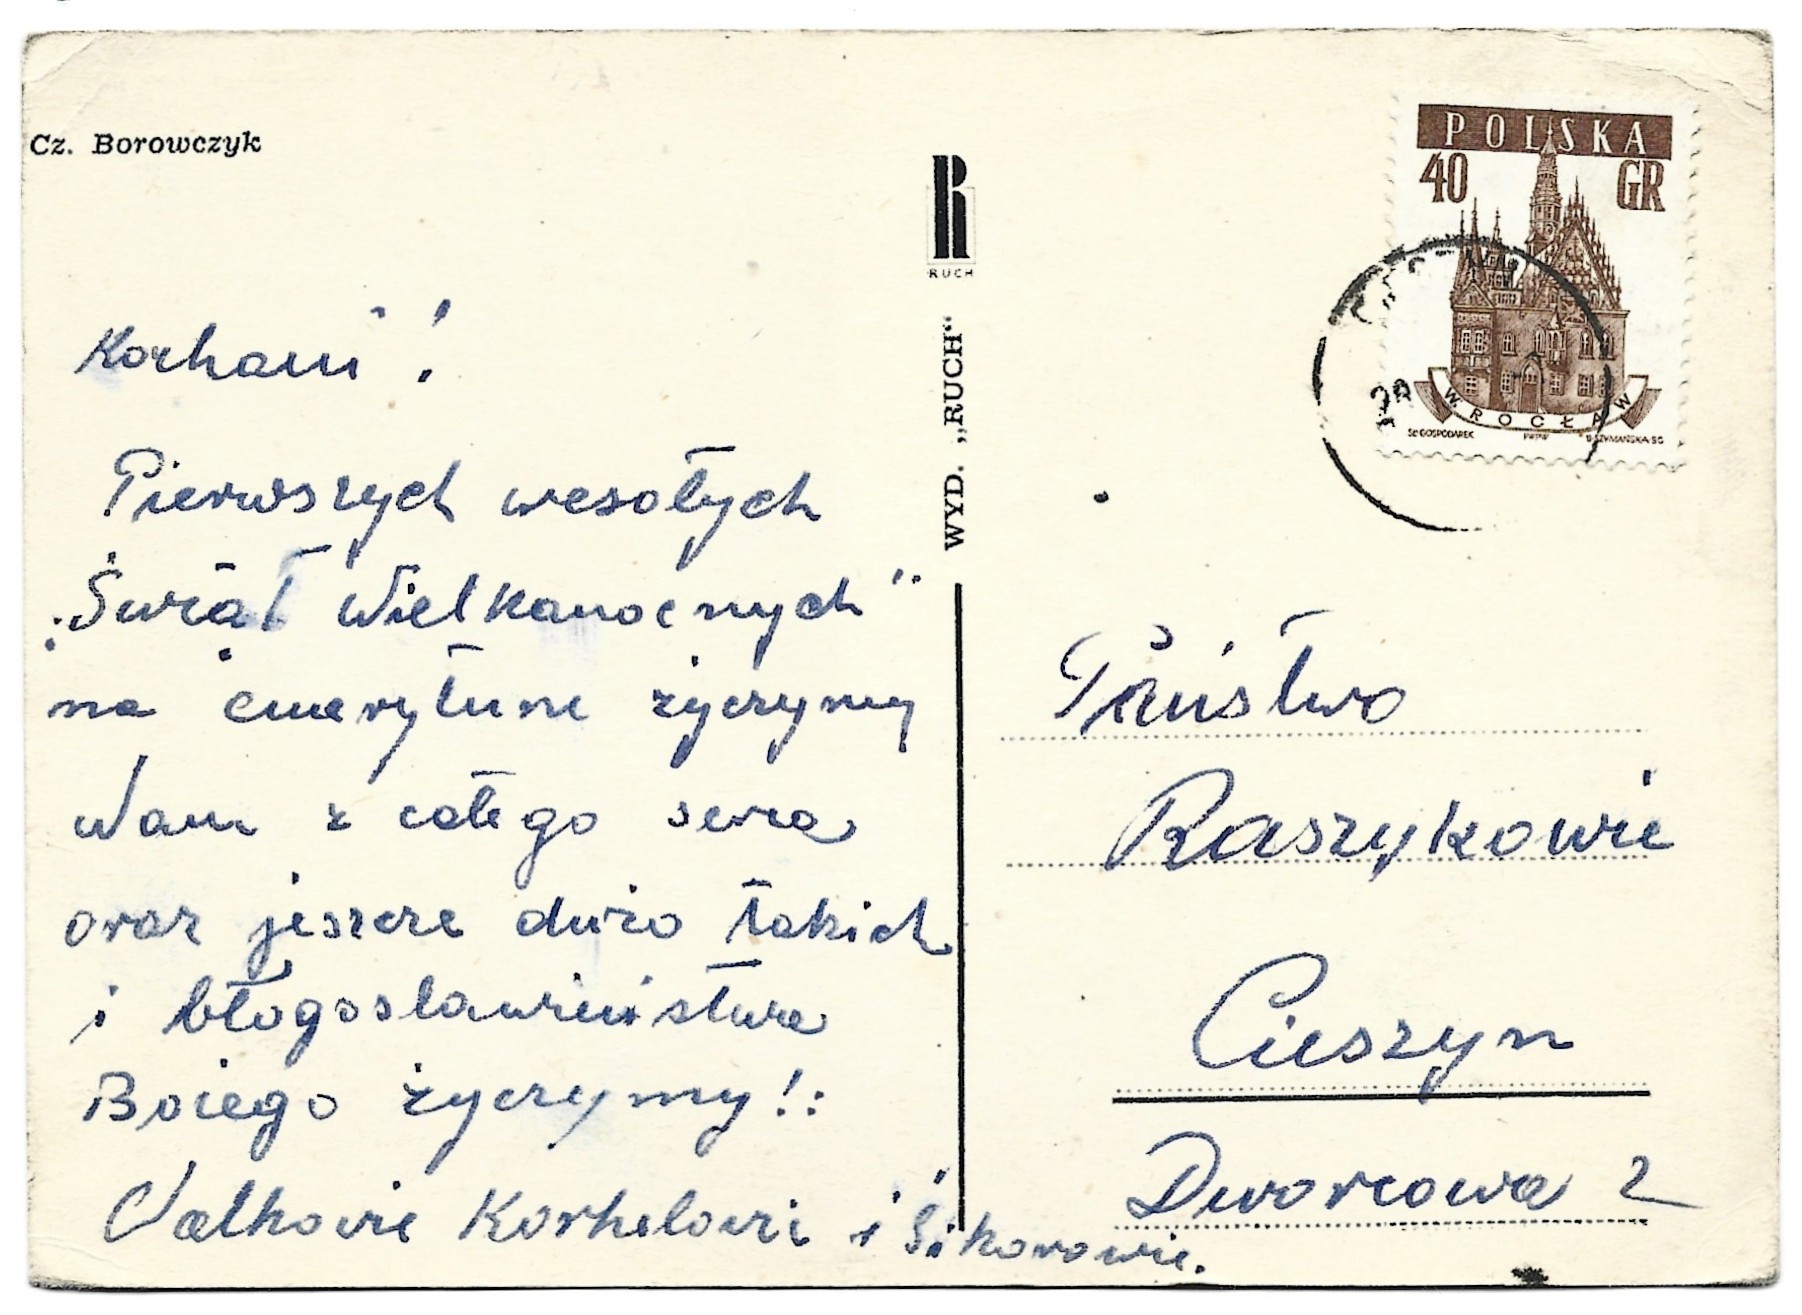 Cz. Borowczyk
Kochani !
Pierwszych wesołych
„Świąt Wielkanocnych"
na emeryturze życzymy
Wam z całego serca
oraz jeszcze dużo takich
i błogosławieństwa
Bożego życzymy !
Kochelowie i Sikorowie.
R
RUCH
WYD. „RUCH"
POLSKA
40 GR
WROCŁAW
SC GOSPODAREK
PWPW
B. SZYMAŃSKA SC
Państwo
Raszykowie
Cieszyn
Dworcowa 2